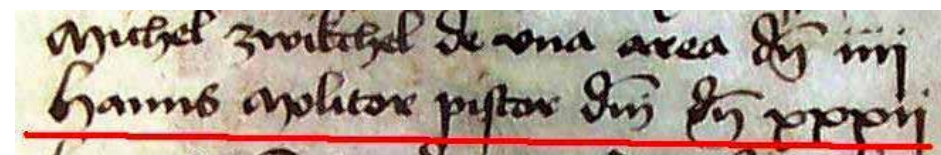 Michel zwikchel de vna area dn̄ iiij
Hanns Molitor pistor dm̄ dn̄ xxxij